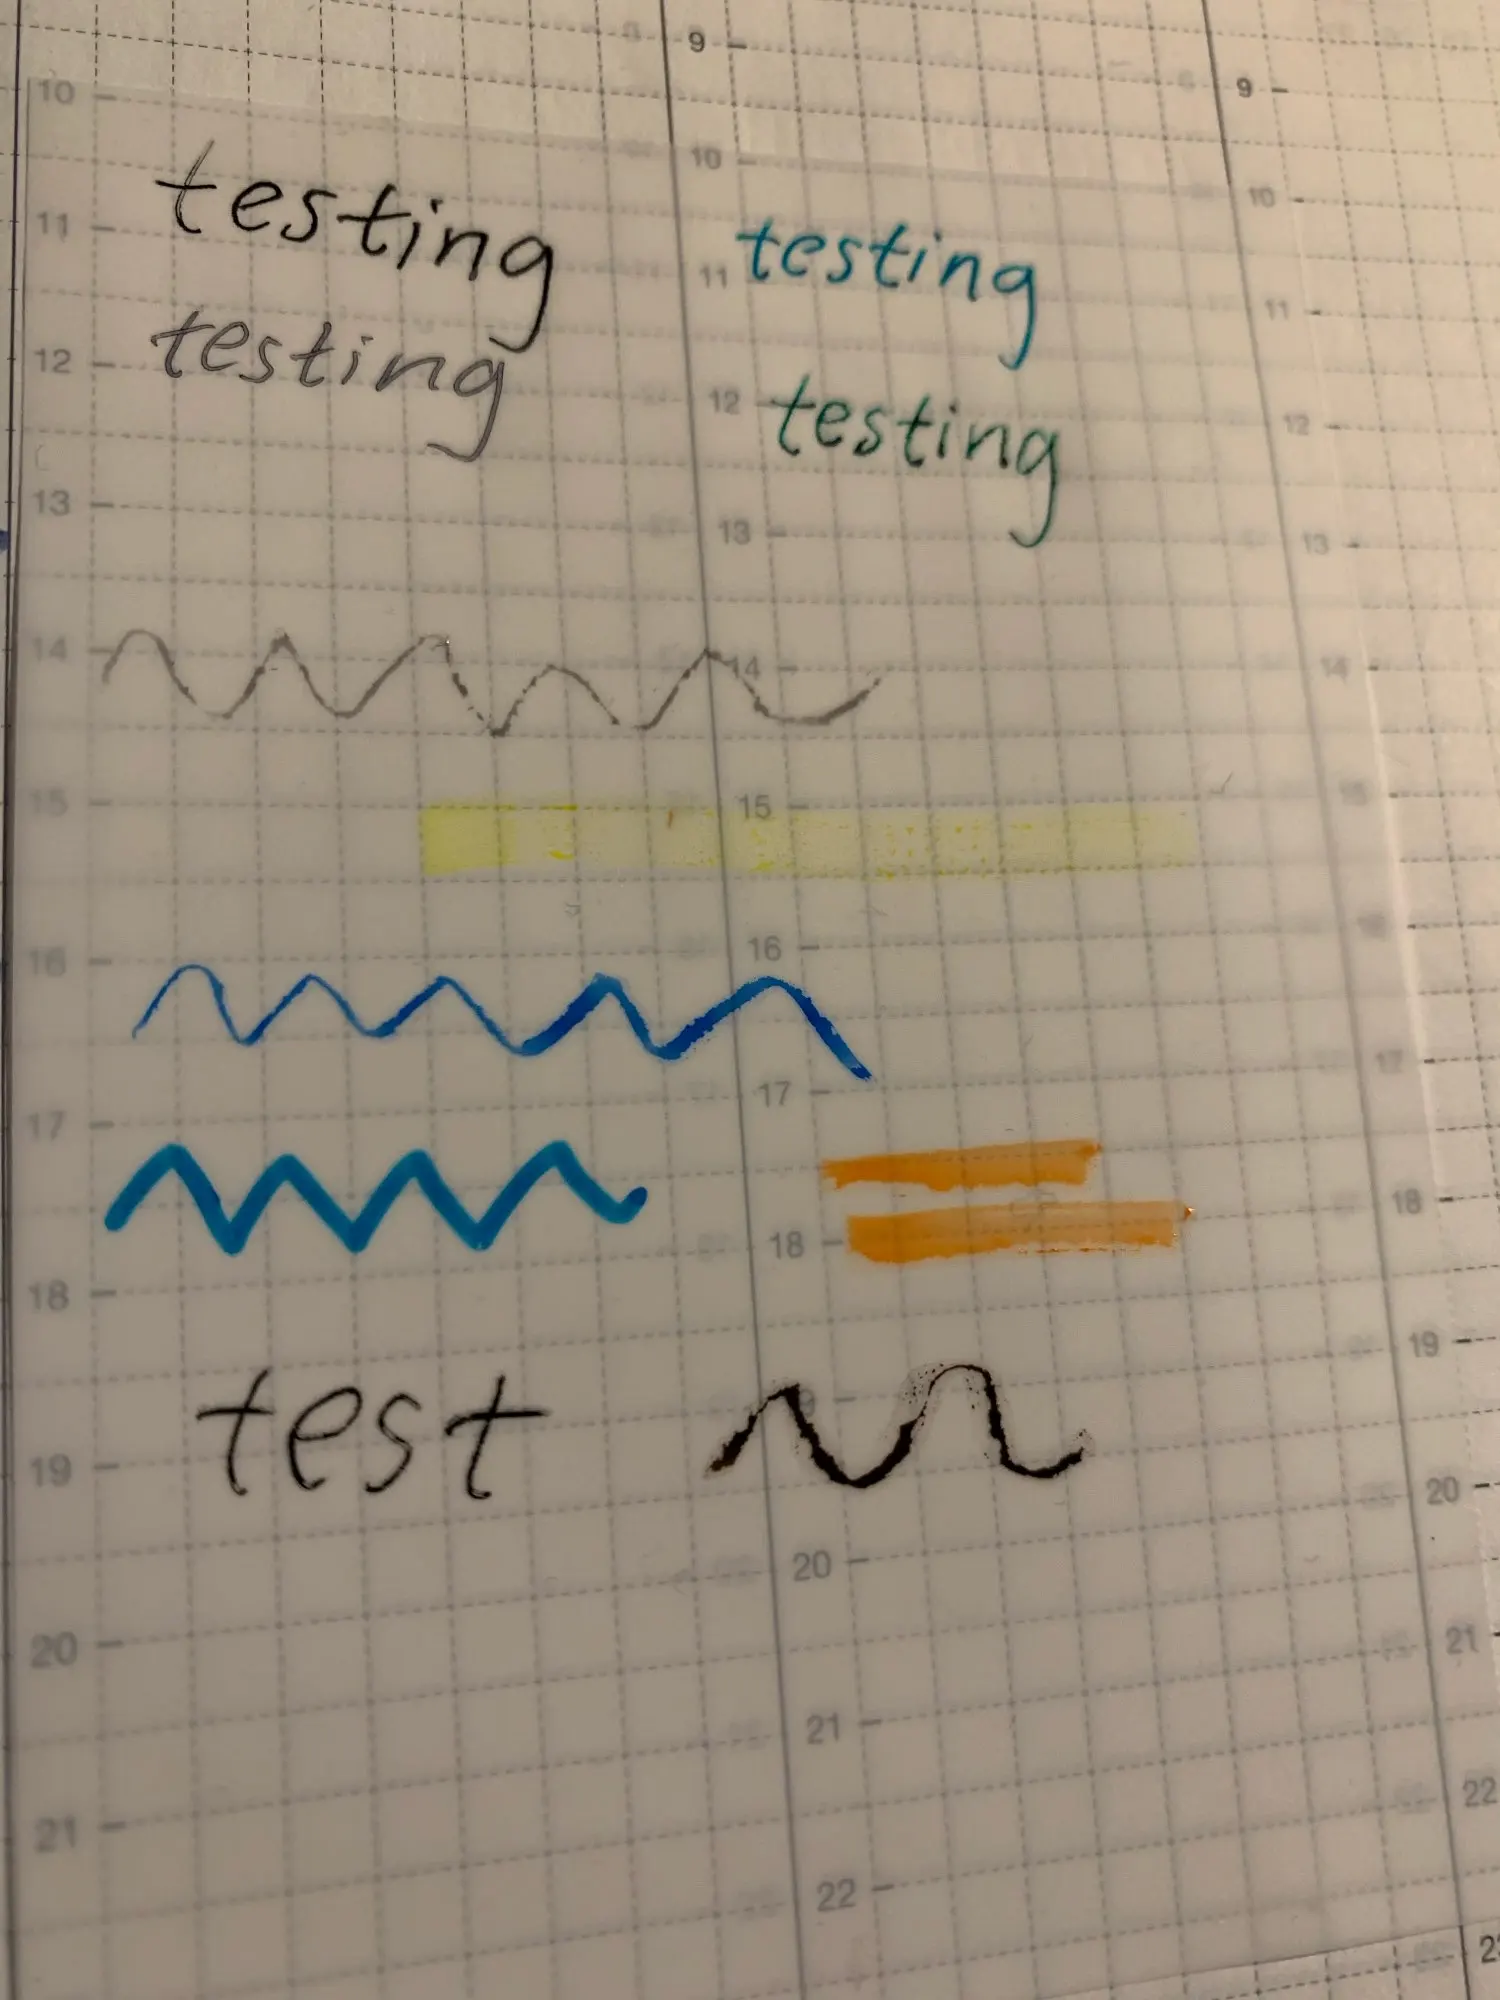 9
9
10
10
10
testing
testing
11
11
11
testing
testing
12
12
12
13
13
13
14
14
14
15
15
15
16
16
16
17
17
17
18
18
18
test
19
19
20
20
20
21
21
21
22
22